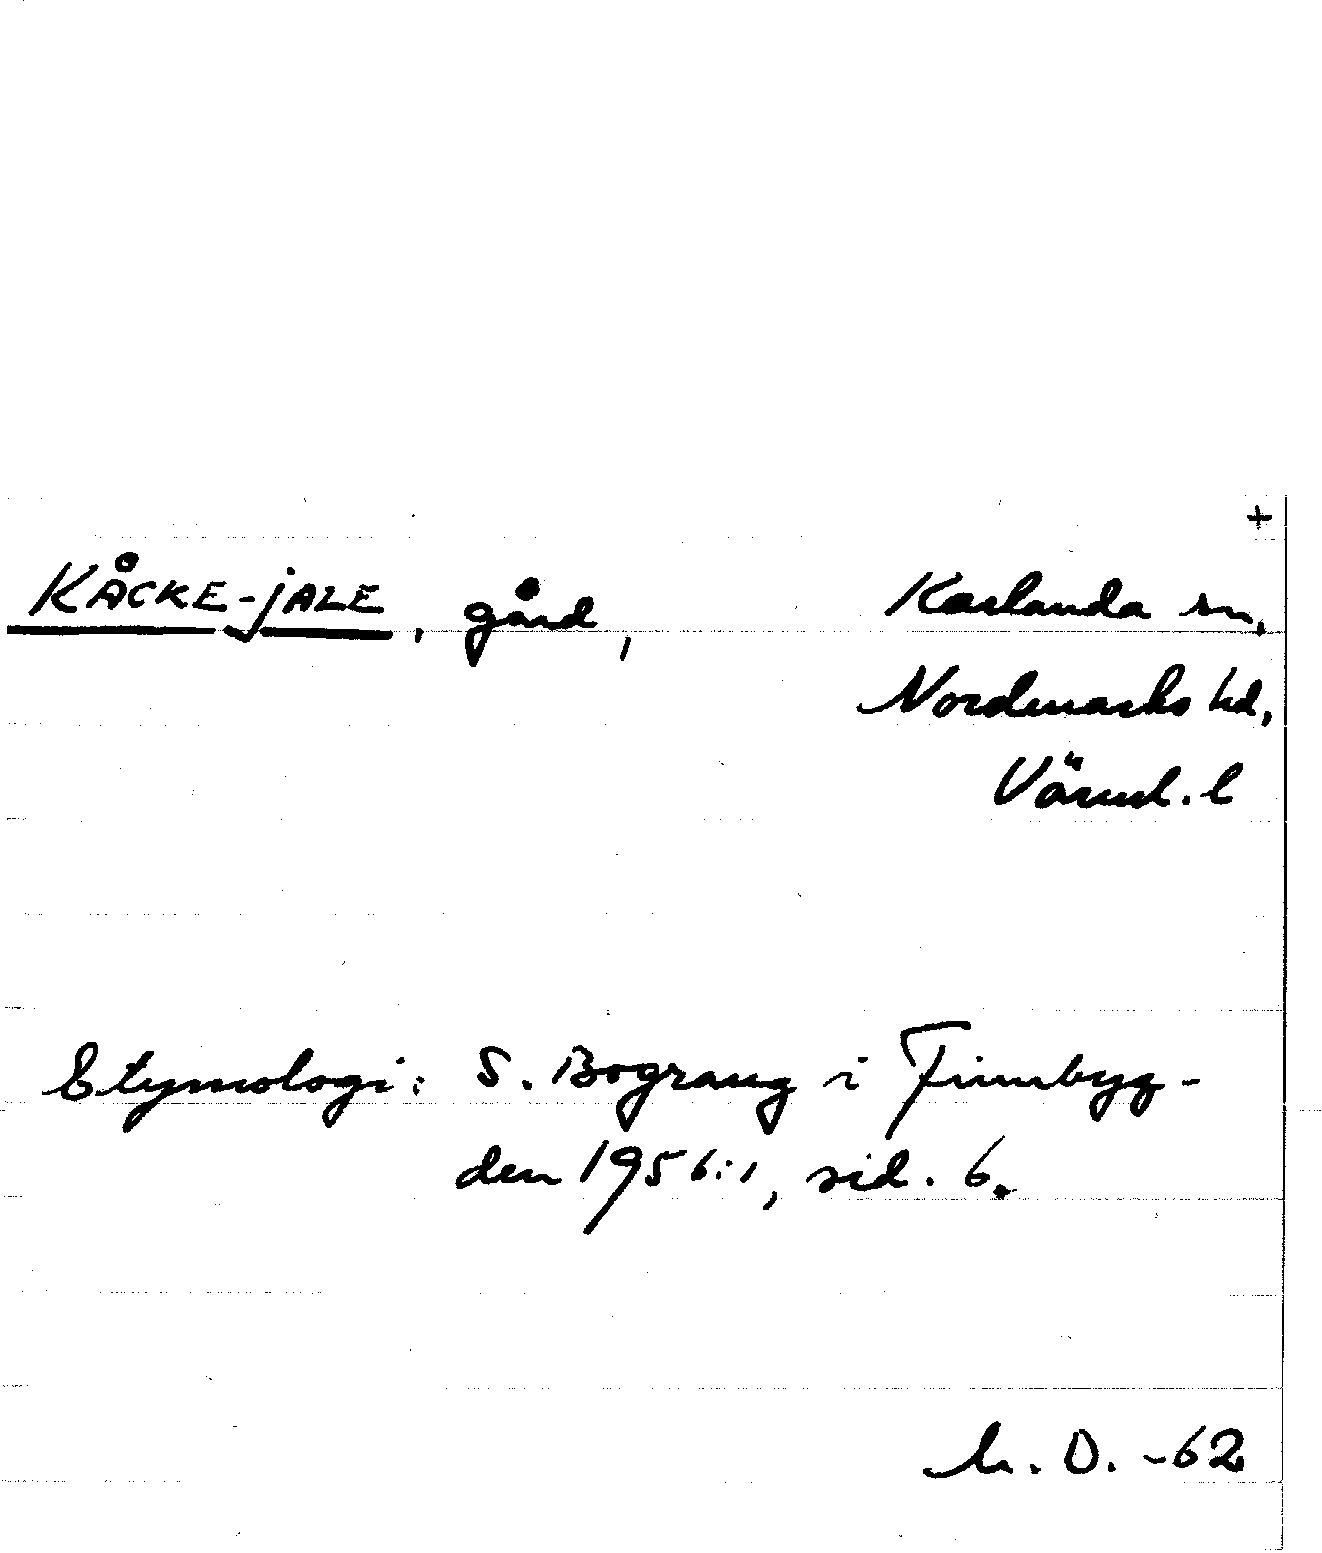 +
KÅCKE-JALE, gård, Karlanda sn,
Nordmarks hd,
Värml. l
Etymologi: S. Bograng i Finnbyg-
den 1956:1, sid. 6.
O. -62